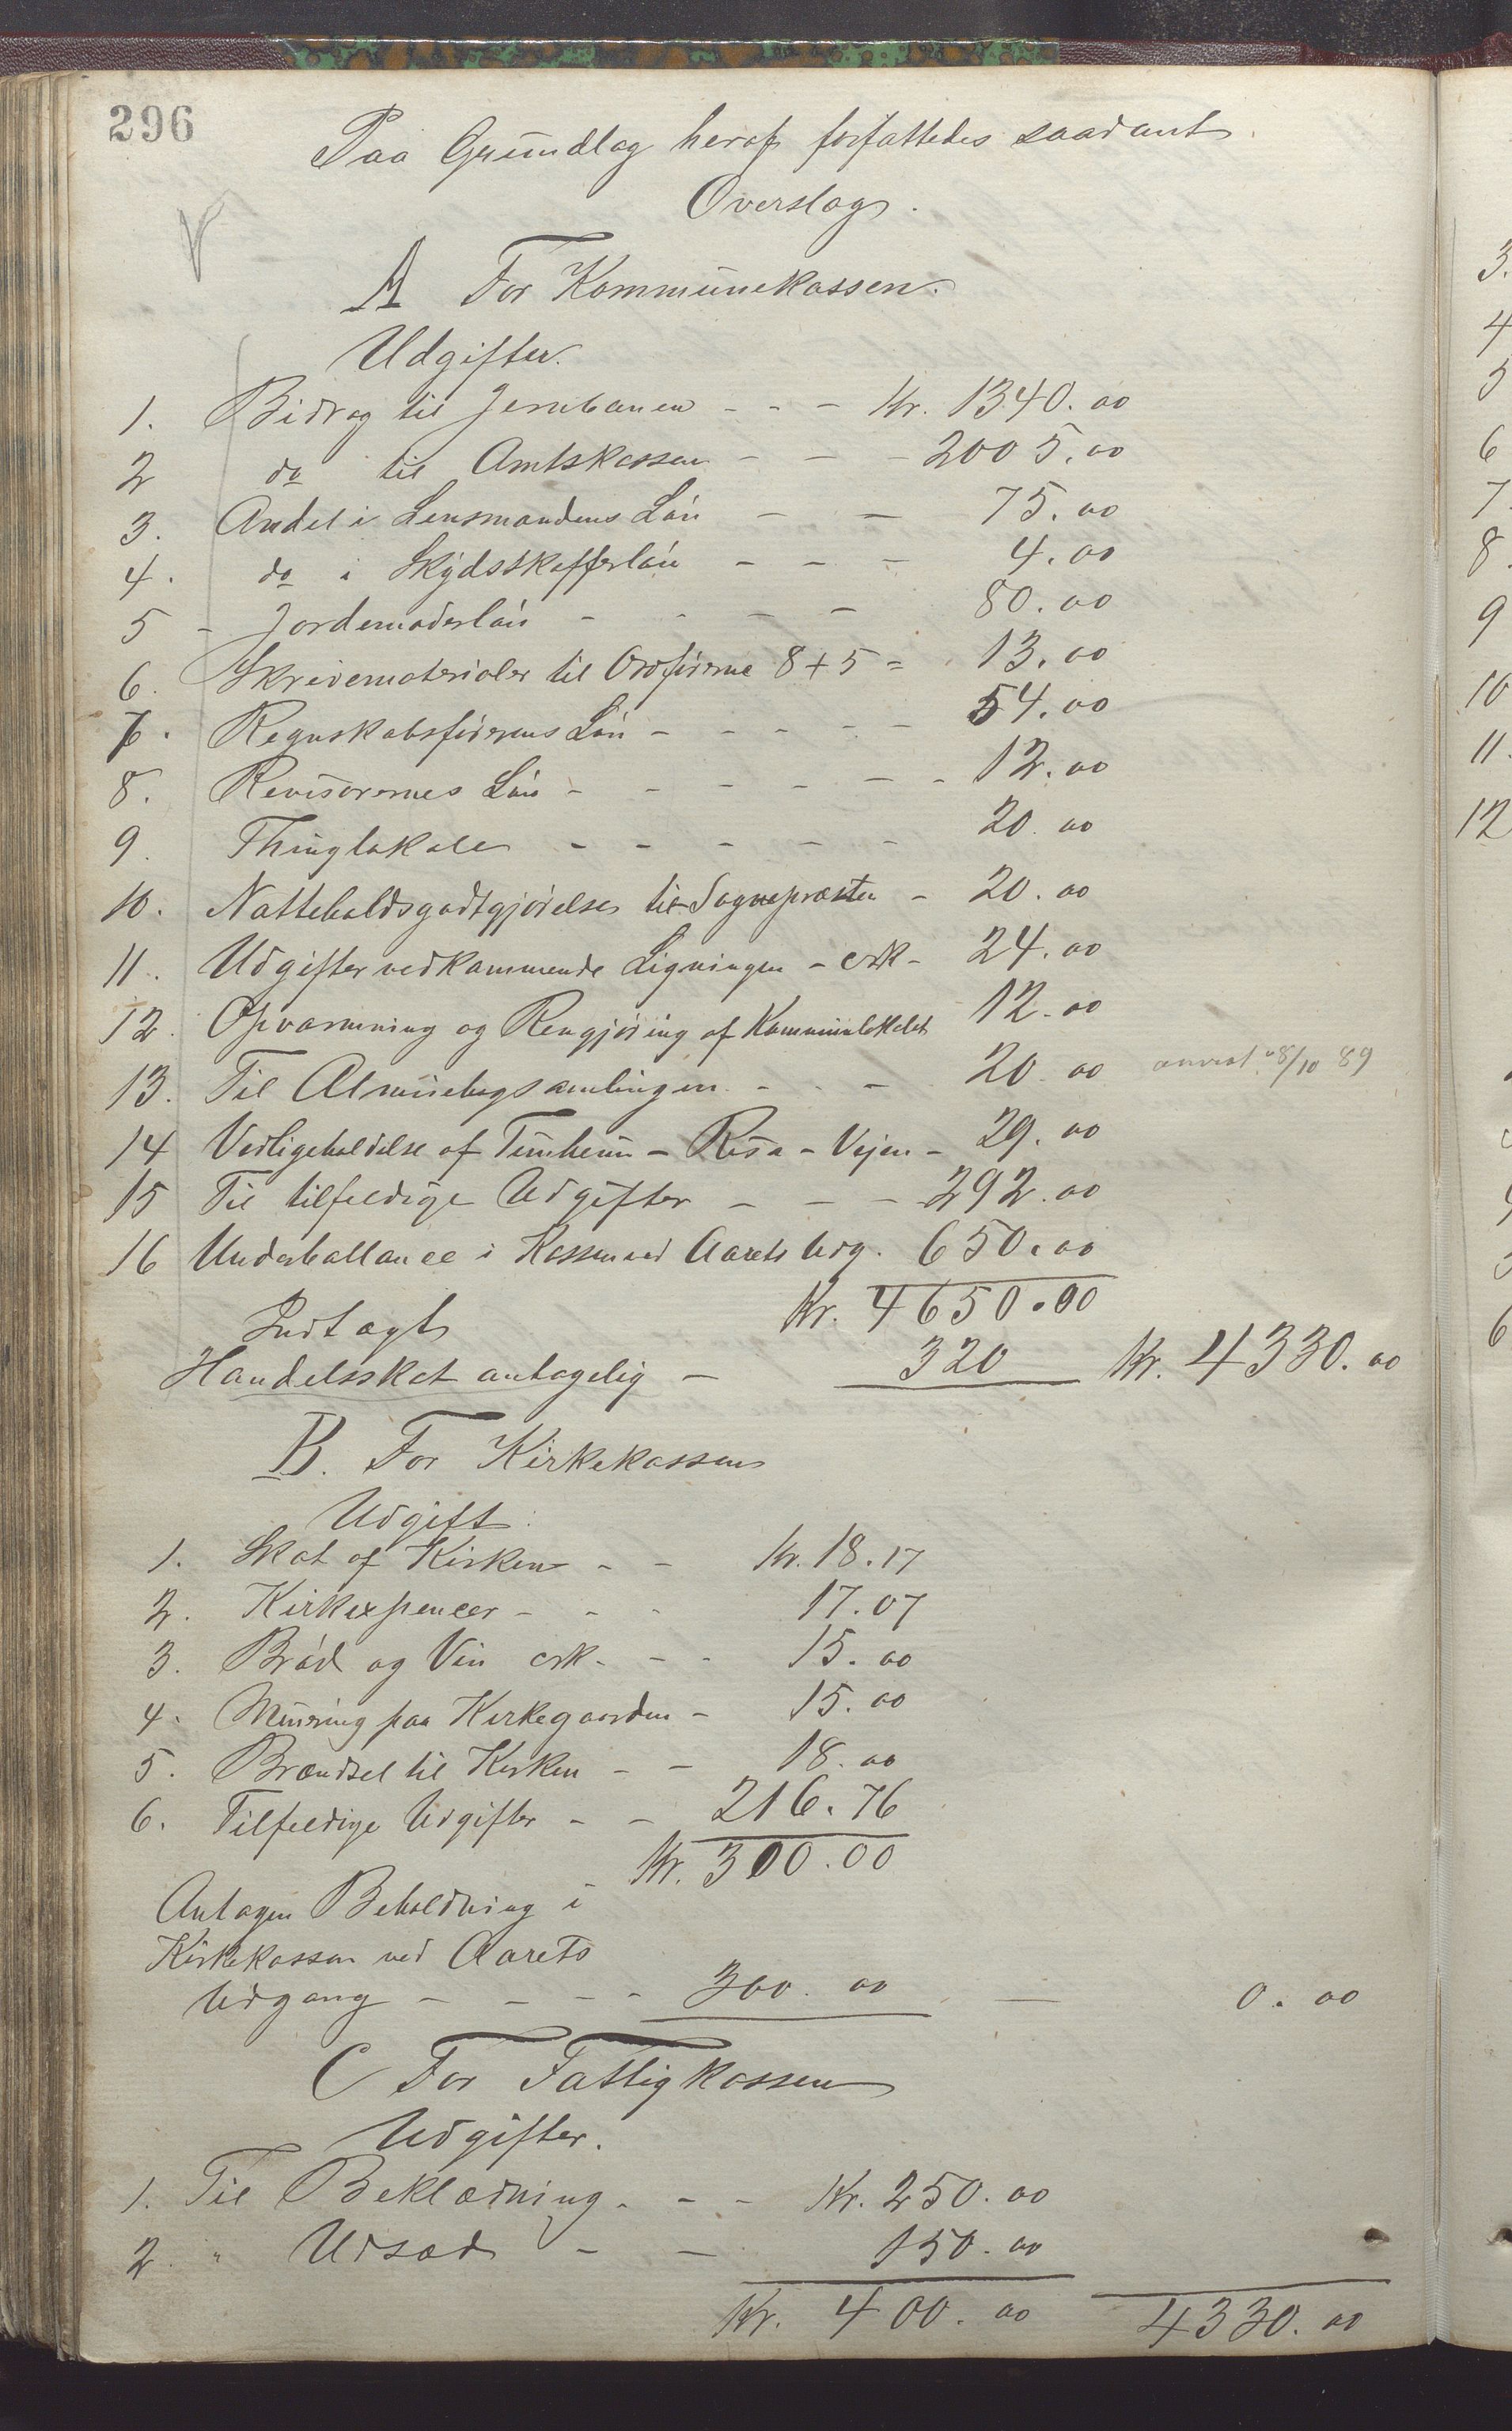 296
Paa Grundlag heraf forfattedes saadant
Overslag.
A For Kommunekassen.
Udgifter.
1. Bidrag til Jernbanen - - - Kr. 1340.00
2 do til Amtskassen - - - 2005.00
3. Andel i Lensmandens Løn - - 75.00
4. do i Skydsskafferløn - - - 4.00
5 - Jordemoderløn - - - - 80.00
6. Skrivematerialer til Ordførerne 8+5 = 13.00
7. Regnskabsførerens Løn - - - - - 54.00
8. Revisorernes Løn - - - - - - 12.00
9. Thinglokale - - - - - 20.00
10. Natteholdsgodtgjørelse til Sognepræsten - 20.00
11. Udgifter vedkommende Ligningen - crk - 24.00
12. Opvarmning og Rengjøring af Kommunelokalet 12.00
13. Til Almuebogsamlingen - - - 20.00 anvist 8/10 89
14 Vedligeholdelse af Tunheim - Risa - Vejen - 29.00
15 Til tilfeldige Udgifter - - - 292.00
16 Underballance i Kassen ved Aarets Udg. 650.00
Kr. 4650.00
Indtægt
Handelsskat antagelig - 320 Kr. 4330.00
B. For Kirkekassen
Udgift:
1. Skat af Kirken - - Kr. 18.17
2. Kirkexpencer - - - 17.07
3. Brød og Vin crk - - - 15.00
4. Muring paa Kirkegaarden - 15.00
5. Brændsel til Kirken - - 18.00
6. Tilfeldige Udgifter - - 216.76
Kr. 300.00
Antagen Beholdning i
Kirkekassen ved Aarets
Udgang - - - - 300.00 — 0.00
C For Fattigkassen
Udgifter.
1. Til Beklædning - - - Kr. 250.00
2. " Udsæd - - 150.00
Kr. 400.00 4330.00
3.
4
5
6
7.
8.
9
10
11.
12